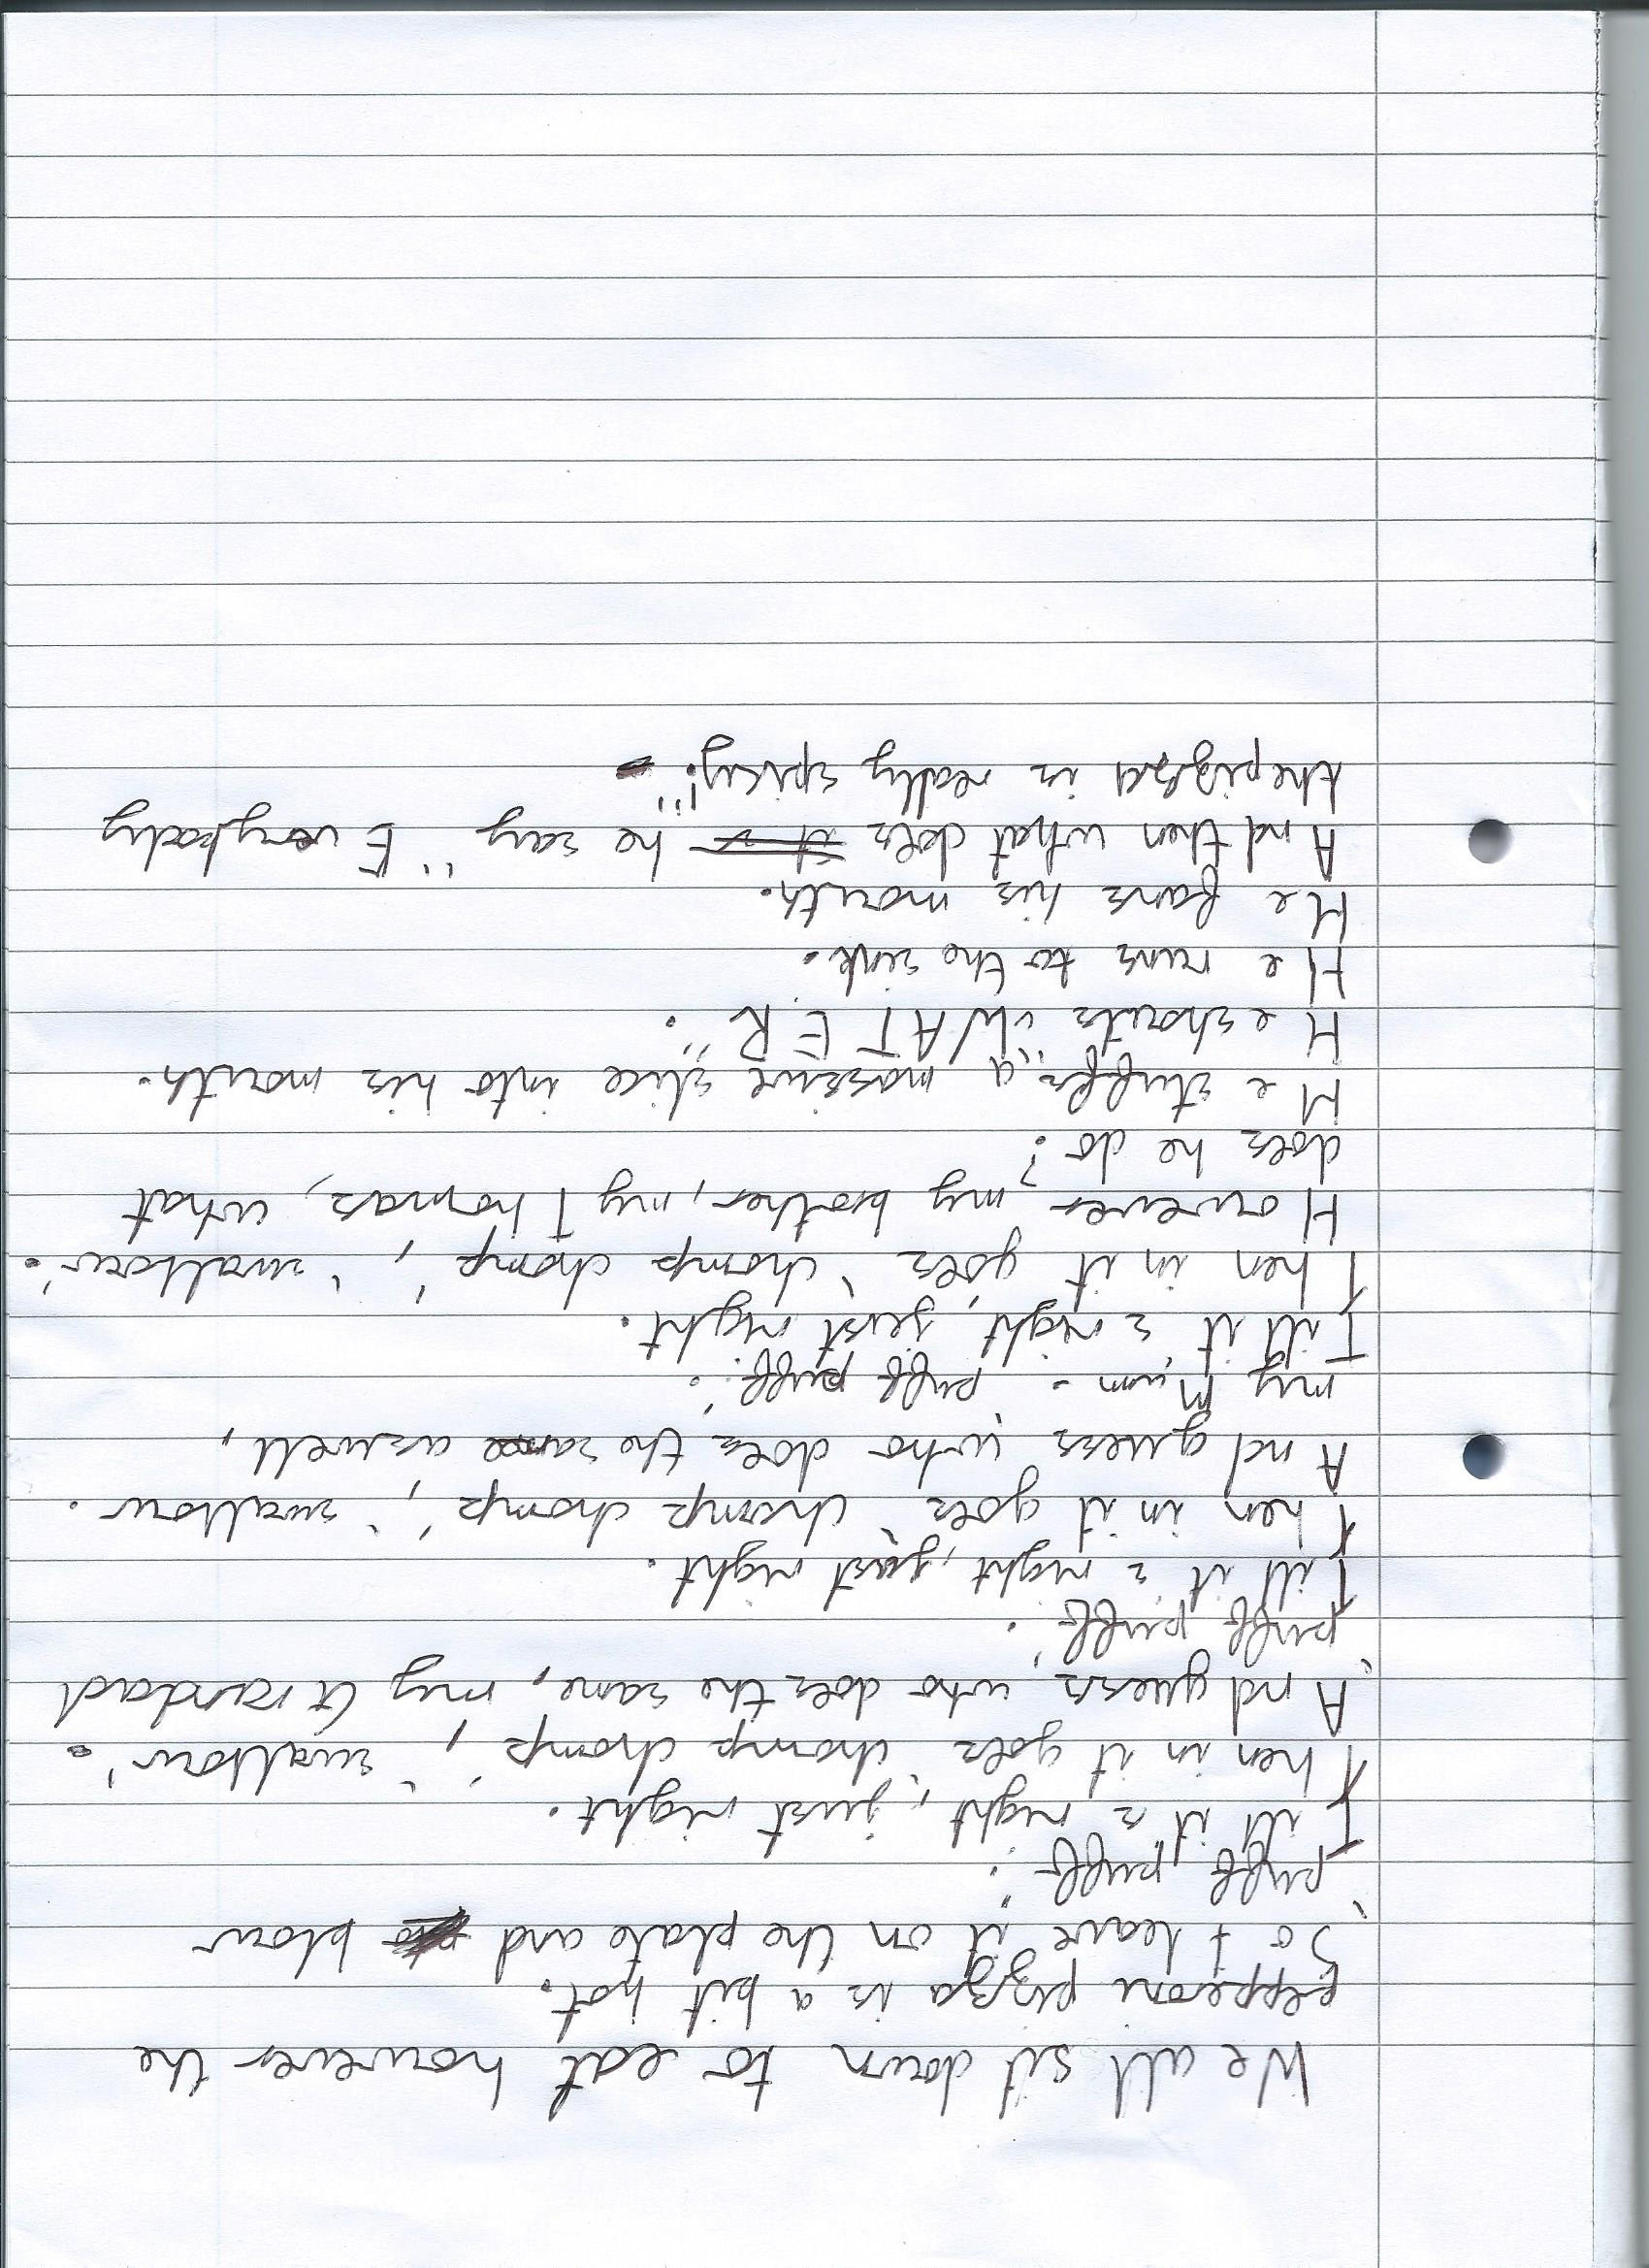 We all sit down to eat however the
pepperoni pizza is a bit hot.
So I leave it on the plate and blow
'puff puff'.
Till it's right, just right.
Then in it goes 'chomp chomp', 'swallow'.
And guess who does the same, my Grandad
'puff puff'.
Till it's right, just right.
Then in it goes 'chomp chomp', 'swallow.
And guess who does the same aswell,
my Mum - 'puff puff'.
Till it's right, just right.
Then in it goes 'chomp chomp', 'swallow'.
However my brother, my Thomas, what
does he do?
He stuffs a massive slice into his mouth.
He shouts "WATER".
He runs to the sink.
He fans his mouth.
And then what does he say "Everybody
the pizza is really spicy!"